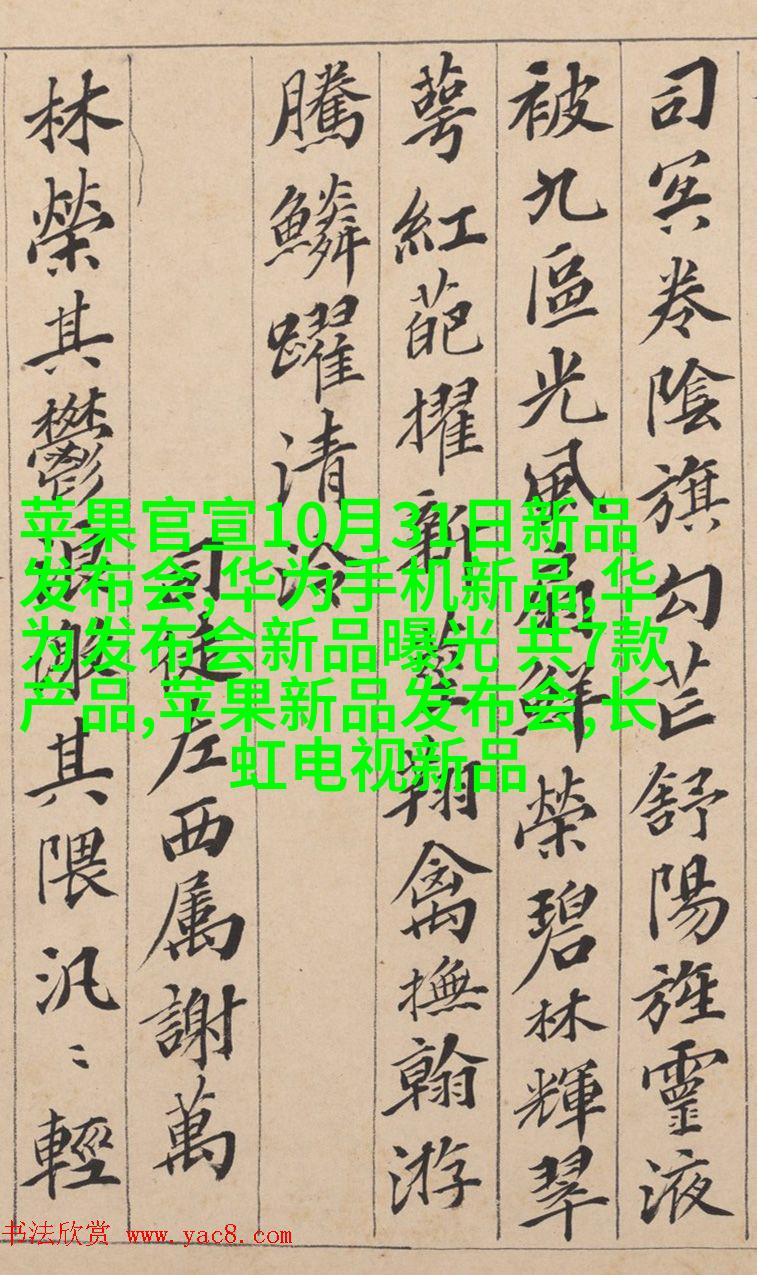 司冥卷陰旗勾芒舒陽旌靈液
被九區光風扇鮮榮碧林輝翠
萼紅葩擢新莖翔禽撫翰游
騰鱗躍清泠
司徒左西属謝萬
林榮其鬱浪激其隈汎〻輕
苹果官宣10月31日新品
发布会,华为手机新品,华
为发布会新品曝光 共7款
产品,苹果新品发布会,长
虹电视新品
书法欣赏 www.yac8.com